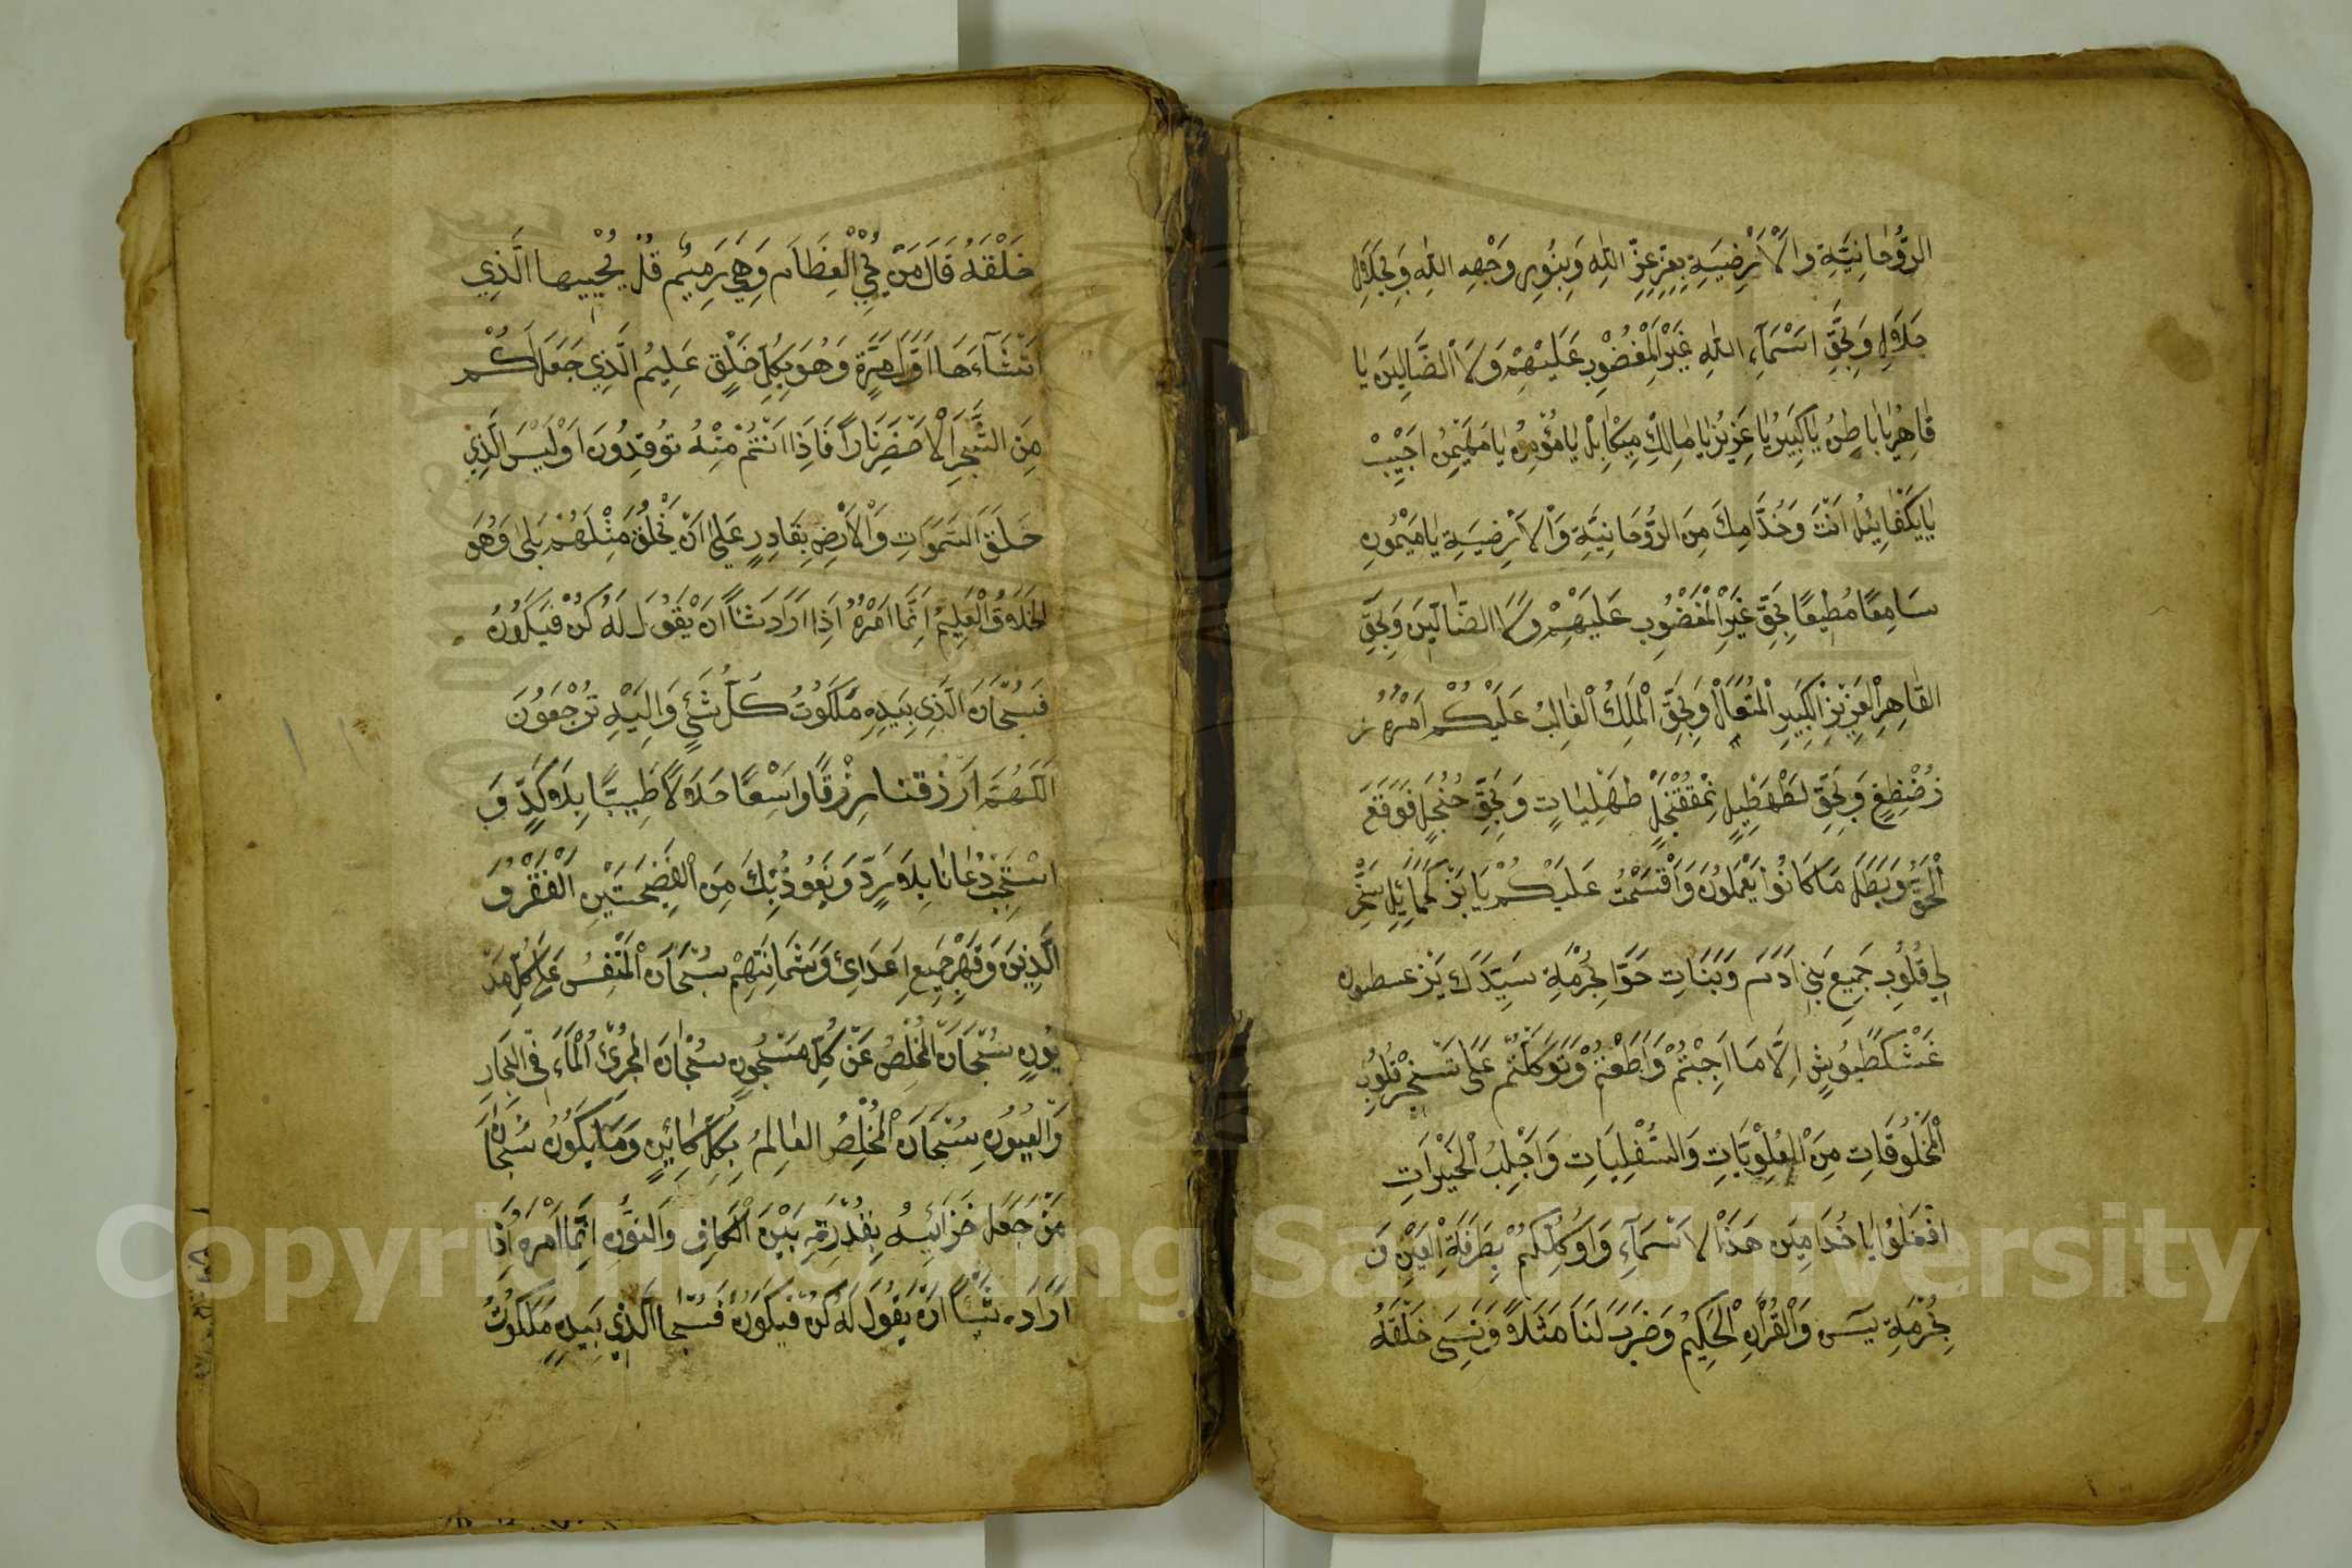 الرُّوحَانِيَّةِ وَالْأَرْضِيَةِ بِعِزِّ عِزِّ اللهِ وَبِنُورِ وَجْهِ اللهِ وَبِجَلَالِ
جَلَالِ وَبِحَقِّ اسْمَآءِ اللهِ غَيْرِ الْمَغْضُوبِ عَلَيْهِمْ وَلَا الضَّالِّينَ يَا
قَاهِرُ يَا بَاطِنُ يَا كَبِيرُ يَا عَزِيزُ يَا مَالِكُ مِيكَايِلُ يَا مُؤْمِنُ يَا مُهَيْمِنُ اَجِيْبْ
يَا يَكْفَايِئلُ اَنْتَ وَخُدَّامِكَ مِنَ الرُّوحَانِيَّةِ وَالْاَرْضِيَةِ يَا مَيْمُونِ
سَامِعًا مُطِيعًا بِحَقِّ غَيْرِ الْمَغْضُوبِ عَلَيْهِمْ وَلَا الضَّالِّينَ وَبِحَقِّ
الْقَاهِرِ الْعَزِيزِ الْكَبِيرِ الْمُتَعَالْ وَبِحَقِّ الْمَلِكُ الْغَالِبُ عَلَيْكُمْ اَمْرُهُ
وَبِحَقِّ لَطْهَطِيلٍ طَهَلِيَاتٍ وَبِحَقِّ فَوَقَعَ
الْحَقُّ وَبَطَلَ مَا كَانُوا يَعْمَلُونَ وَاَقْسَمْتُ عَلَيْكُمْ يَا سَخِّرْ
لِي قُلُوبِ جَمِيعِ بَنِي اٰدَمَ وَبَنَاتِ حَوَّا بِحُرْمَةِ سَيِّدِكَ
اِلَّا مَا اَجِبْتُمْ وَاَطَعْتُمْ وَتَوَكَّلْتُمْ عَلَى تَسْخِيرْ قُلُوبِ
الْمَخْلُوقَاتِ مِنَ الْعُلْوِيَّاتِ وَالسُّفْلِيَاتِ وَاَجْلِبُ الْخَيْرَاتِ
اِفْعَلُوْا يَا خُدَّامِينَ هَذَا الْاَسْمَآءِ وَاَوْكَلْكُمْ بِطَرْفَةِ الْعَيْنِ وَ
بِحُرْمَةِ يٰسٓ وَالْقُرْاٰنِ الْحَكِيمُ وَضَرَبَ لَنَا مَثَلًا وَنَسِيَ خَلْقَهُ
خَلْقَهُ قَالَ مَنْ يُحْيِي الْعِظَامَ وَهِيَ رَمِيْمٌ قُلْ يُحْيِيهَا الَّذِي
اَنْشَاءَهَا اَوَّلَ مَرَّةٍ وَهُوَ بِكُلِّ خَلْقٍ عَلِيْمُ الَّذِي جَعَلَ لَكُمْ
مِنَ الشَّجَرِ الْاَخْضَرِ نَارًا فَاِذَا اَنْتُمْ مِنْهُ تُوقِدُونَ اَوَلَيْسَ الَّذِي
خَلَقَ السَّمٰوَاتِ وَالْاَرْضِ بِقَادِرٍ عَلَى اَنْ يَخْلُقَ مِثْلَهُمْ بَلٰى وَهُوَ
الْخَلَّاقُ الْعَلِيمُ اِنَّمَا اَمْرُهُ اِذَا اَرَادَ شَئًا اَنْ يَقُولَ لَهُ كُنْ فَيَكُونُ
فَسُبْحَانَ الَّذِي بِيَدِهِ مَلَكُوتُ كُلِّ شَيْءٍ وَاِلَيْهِ تُرْجَعُونَ
اَللّٰهُمَّ ارْزُقْنَا رِزْقًا وَاسِعًا حَلَالًا طَيِّبًا بِلَا كَدٍّ وَ
اسْتَجِبْ دُعَانَا بِلَا رَدٍّ وَنَعُوذُ بِكَ مِنَ الْفَضِيحَتَيْنِ الْفَقْرِ وَ
الَّدِيْنَ وَقَهِّرْ جَمِيعِ اَعْدَائِي وَشَمَاتَتِهِمْ سُبْحَانَ الْمُنَفِّسِ عَلَى كُلِّ مَدْ
يُونٍ سُبْحَانَ الْمُخْلِصُ عَنْ كُلِّ مَسْجُونٍ سُبْحَانَ الْمُجْرِي الْمَاءَ فِي الْبِحَارِ
وَالْعُيُونِ سُبْحَانَ الْمُخْلِصُ الْعَالِمُ بِكُلِّ كَائِنٍ وَمَا يَكُونُ سُبْحَانَ
مَنْ جَعَلَ خَزَائِنَهُ بِقُدْرَتِهِ بَيْنَ الْكَافِ وَالنُّونِ اِنَّمَا اَمْرُهُ اِذَا
اَرَادَ شَئًا اَنْ يَقُولَ لَهُ كُنْ فَيَكُونُ فَسُبْحَا الَّذِي بِيَدِهِ مَلَكُوتُ
Copyright © King Saud University